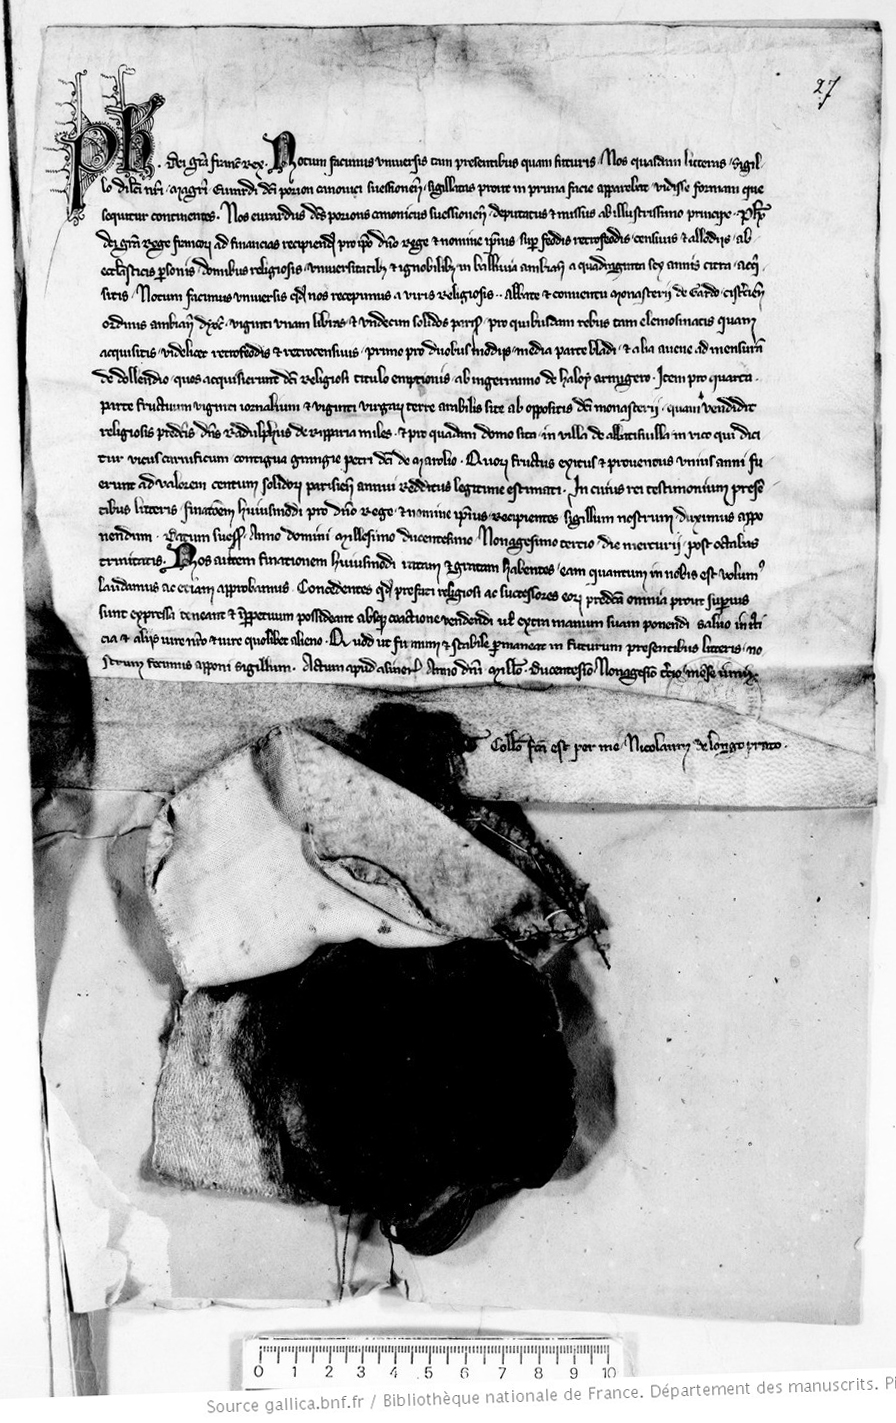 27
Ph. dei gra franc Rex. Notum facimus vniuersis tam presentibus quam futuris. Nos quasdam litteras sigil
lo dilci nri magri Euurdi dci porion canonici suessionen sigillatas prout in prima facie apparebat vidisse formam que
sequitur continentes. Nos euurdus dcs porions canonicus suessionen deputatus et missus ab illustrissimo principe Ph
dei gra Rege francor ad financias recipiend pro ipo dno rege et nomine ipsius sup feodis retrofeodis censiuis et allodijs ab
ecclasticis psonis domibus religiosis vniuersitatib et ignobilib in balliuia ambian a quadraginta sex annis citra acq
sitis. Notum facimus vniuersis qd nos recepimus a viris Religiosis .. abbate et conuentu monasterij de Gardo cistercien
ordinis ambian dyoc viginti vnam libras et vndecim solidos paris pro quibusdam rebus tam elemosinatis quam
acquisitis videlicet retrofeodis et retrocensiuis primo pro duobus modijs media parte bladi et alia auene ad mensuram
de dollendio quos acquisierunt dci Religiosi titulo emptionis ab ingerranno de haloy armigero. Item pro quarta
parte fructuum viginti iornalium et viginti virgar terre arabilis site ab oppositis dci monasterij quam vendidit
religiosis predcis dns Radulphus de Ripparia miles et pro quadam domo sita in villa de abbatisuilla in vico qui dici
tur vicus carnificum contigua grangie petri dci de Quorum fructus exitus et prouentus vnius anni fu
erunt ad valorem centum solidor parisien annui Redditus legitime estimati. In cuius rei testimonium presen
tibus litteris finacoem huiusmodi pro dno Rege et nomine ipsius Recipientes sigillum nostrum duximus appo
nendum. Datum suess. Anno domini Millesimo ducentesimo Nonagesimo tercio die mercurij post octabas
trinitatis. Nos autem finationem huiusmodi ratam et gratam habentes eam quantum in nobis est volum9
laudamus ac etiam approbamus. Concedentes qd prefati religiosi ac successores eor predcta omnia prout superius
sunt expressa teneant et imppetuum possideant absq coactione vendendi ul extra manum suam ponendi saluo in
cia et alijs iure nro et iure quolibet alieno. Quod ut firmum et stabile pmaneat in futurum presentibus litteris no
strum fecimus apponi sigillum. Actum apud Anno dni Millo ducentesio Nonagesio tcio mense
Collo fca est per me Nicolaum de longo prato.
0 1 2 3 4 5 6 7 8 9 10
Source gallica.bnf.fr / Bibliothèque nationale de France. Département des manuscrits. Pi